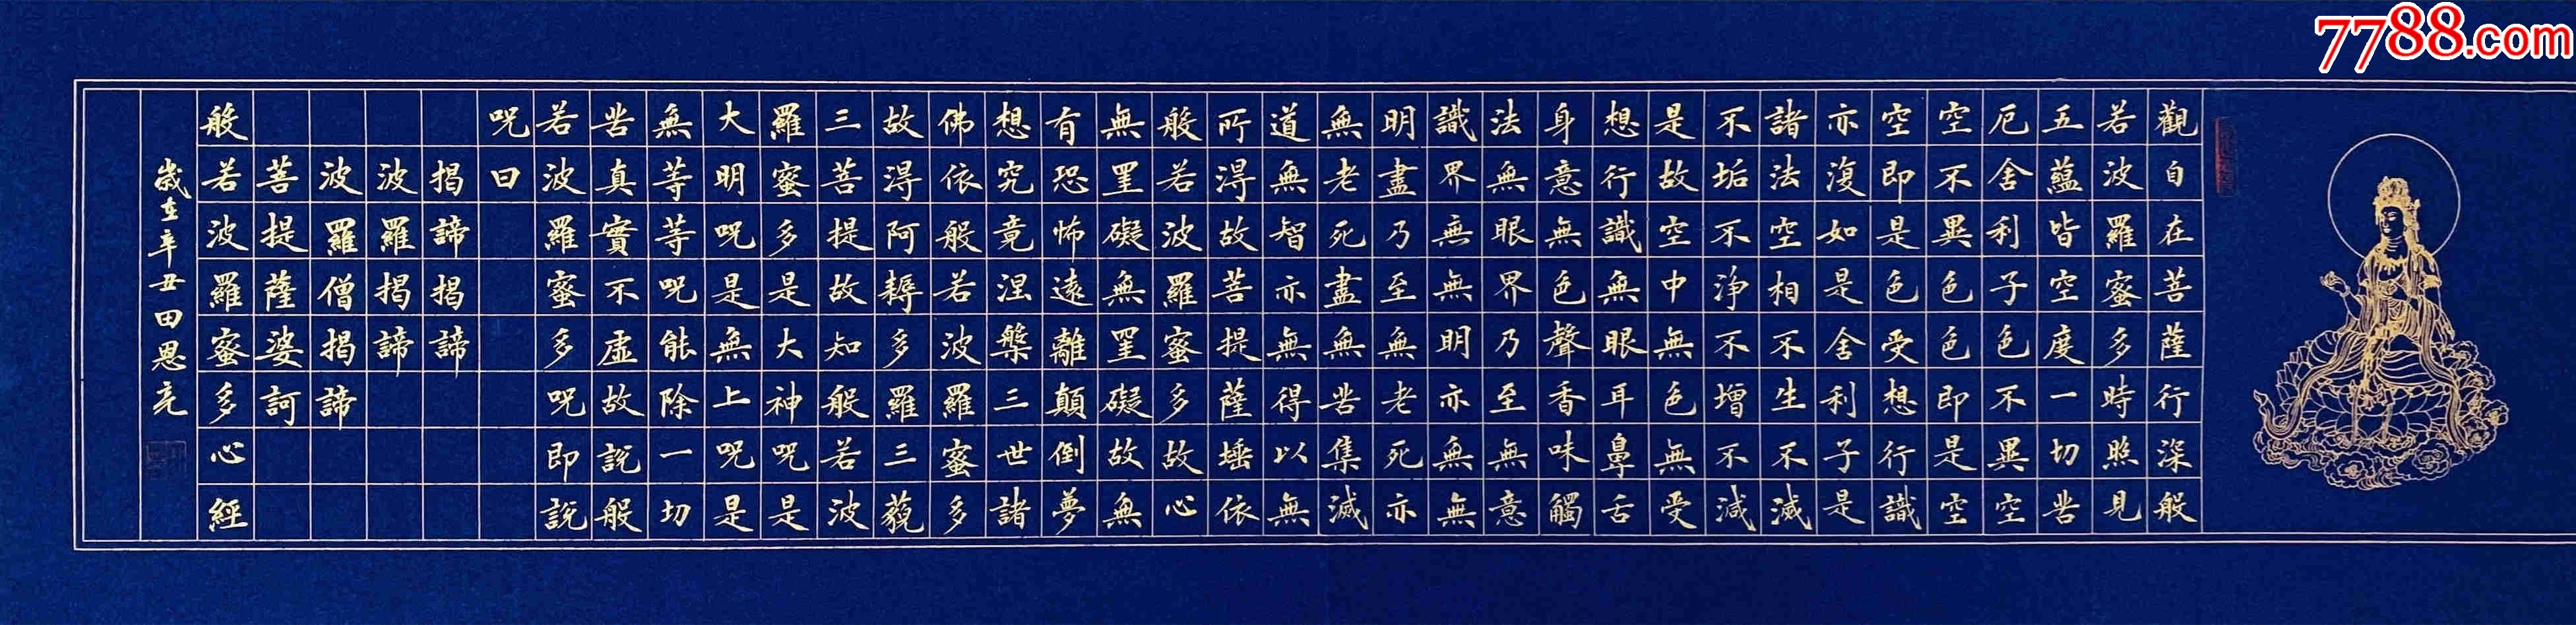 7788.com
觀自在菩薩行深般
若波羅蜜多時照見
五蘊皆空度一切苦
厄舍利子色不異空
空不異色色即是空
空即是色受想行識
亦復如是舍利子是
諸法空相不生不滅
不垢不淨不增不減
是故空中無色無受
想行識無眼耳鼻舌
身意無色聲香味觸
法無眼界乃至無意
識界無無明亦無無
明盡乃至無老死亦
無老死盡無苦集滅
道無智亦無得以無
所得故菩提薩埵依
般若波羅蜜多故心
無罣礙無罣礙故無
有恐怖遠離顛倒夢
想究竟涅槃三世諸
佛依般若波羅蜜多
故得阿耨多羅三藐
三菩提故知般若波
羅蜜多是大神呪是
大明呪是無上呪是
無等等呪能除一切
苦真實不虛故說般
若波羅蜜多呪即說
呪曰
揭諦揭諦
波羅揭諦
波羅僧揭諦
菩提薩婆訶
般若波羅蜜多心經
歲在辛丑田恩亮